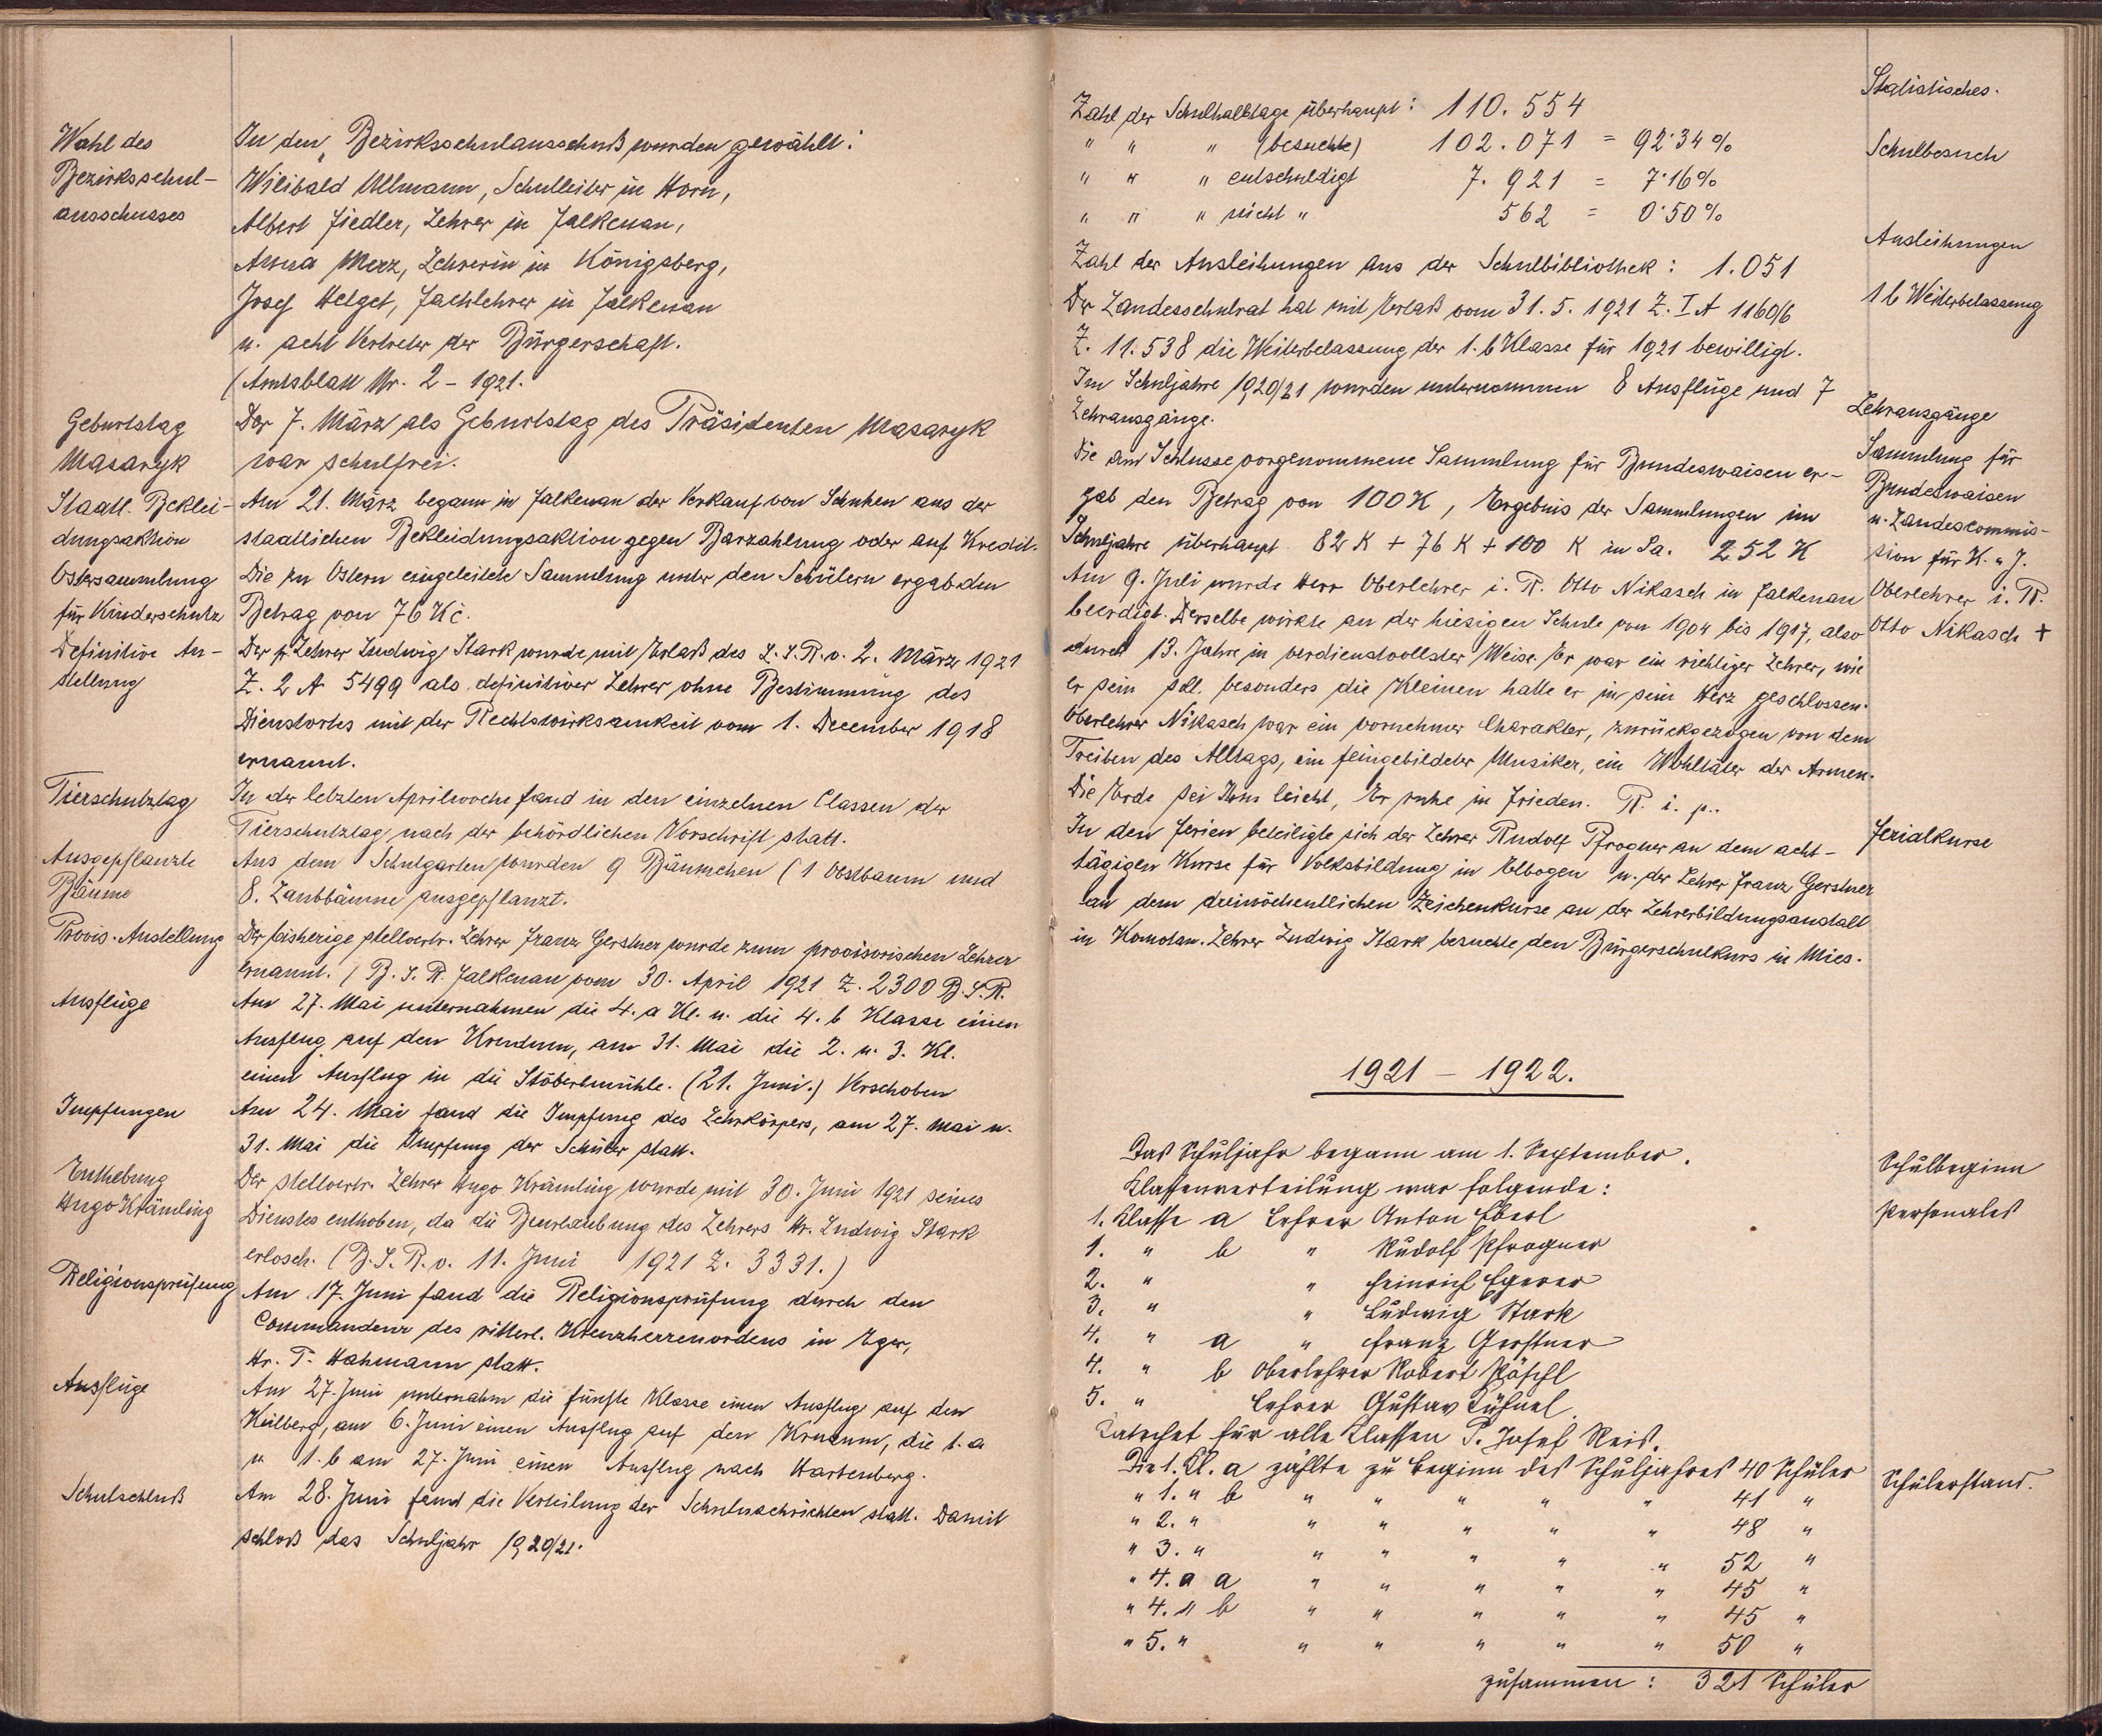 Wahl des
Bezirksschul-
ausschusses
In den Bezirksschulausschuß wurden gewählt:
Wilibald Ullmann, Schulleiter in Horn,
Albert Fiedler, Lehrer in Falkenau,
Anna Merz, Lehrerin in Königsberg,
Josef Helget, Fachlehrer in Falkenau
u. acht Vertreter der Bürgerschaft.
(Amtsblatt Nr. 2 – 1921.
Geburtstag
Masaryk
Der 7. März als Geburtstag des Präsidenten Masaryk
war schulfrei.
Staatl. Beklei-
dungsaktion
Am 21. März begann in Falkenau der Verkauf von Schuhen aus der
staatlichen Bekleidungsaktion gegen Barzahlung oder auf Kredit.
Ostersammlung
für Kinderschutz
Die zu Ostern eingeleitete Sammlung unter den Schülern ergab den
Betrag von 76 Kč.
Definitive An-
stellung
Der pr. Lehrer Ludwig Stark wurde mit Erlaß des L.S.R. v. 2. März 1921
Z. 2 A 5499 als definitiver Lehrer ohne Bestimmung des
Dienstortes mit der Rechtswirksamkeit vom 1. December 1918
ernannt.
Tierschutztag
In der letzten Aprilwoche fand in den einzelnen Classen der
Tierschutztag nach der behördlichen Vorschrift statt.
Ausgepflanzte
Bäume
Aus dem Schulgarten wurden 9 Bäumchen (1 Obstbaum und
8. Laubbäume ausgepflanzt.
Provis. Anstellung
Der bisherige stellvertr. Lehrer Franz Gerstner wurde zum provisorischen Lehrer
ernannt. / B.S.R. Falkenau vom 30. April 1921 Z. 2300 B.S.R.
Ausflüge
Am 27. Mai unternahmen die 4. a Kl. u. die 4. b Klasse einen
Ausflug auf den Krudum, am 31. Mai die 2. u. 3. Kl.
einen Ausflug in die Stöberlmühle. (21. Juni.) Verschoben
Impfungen
Am 24. Mai fand die Impfung des Lehrkörpers, am 27. Mai u.
31. Mai die Impfung der Schüler statt.
Enthebung
Hugo Krämling
Der stellvertr. Lehrer Hugo Krämling wurde mit 30. Juni 1921 seines
Dienstes enthoben, da die Beurlaubung des Lehrers Hr. Ludwig Stark
erlosch. (B.S.R. v. 11. Juni 1921 Z. 3331.)
Religionsprüfung
Am 17. Juni fand die Religionsprüfung durch den
Commandeur des ritterl. Kreuzherrenordens in Eger,
Hr. P. Hahmann statt.
Ausflüge
Am 27. Juni unternahm die fünfte Klasse einen Ausflug auf den
Keilberg, am 6. Juni einen Ausflug auf den Krudum, die 1. a
u 1. b am 27. Juni einen Ausflug nach Hartenberg.
Schulschluß
Am 28. Juni fand die Verteilung der Schulnachrichten statt. Damit
schloß das Schuljahr 1920/21.
Statistisches.
Zahl der Schulhalbtage überhaupt: 110.554
Schulbesuch
" " " (besuchte) 102.071 = 92·34 %
" " " entschuldigt 7.921 = 7·16 %
" " " nicht " 562 = 0·50 %
Ausleihungen
Zahl der Ausleihungen aus der Schulbibliothek: 1.051
1 b Weiterbelassung
Der Landesschulrat hat mit Erlaß vom 31. 5. 1921 Z. I A 1160/6
Z. 11.538 die Weiterbelassung der 1. b Klasse für 1921 bewilligt.
Im Schuljahre 1920/21 wurden unternommen 8 Ausflüge und 7
Lehrausgänge.
Lehrausgänge
Sammlung für
Bundeswaisen
u. Landescommis-
sion für K. u J.
Die am Schlusse vorgenommene Sammlung für Bundeswaisen er-
gab den Betrag von 100 K, Ergebnis der Sammlungen im
Schuljahre überhaupt 82 K + 76 K + 100 K in Sa. 252 K
Oberlehrer i. R.
Otto Nikasch +
Am 9. Juli wurde Herr Oberlehrer i. R. Otto Nikasch in Falkenau
beerdigt. Derselbe wirkte an der hiesigen Schule von 1904 bis 1917, also
durch 13. Jahre in verdienstvollster Weise. Er war ein richtiger Lehrer, wie
er sein soll, besonders die Kleinen hatte er in sein Herz geschlossen.
Oberlehrer Nikasch war ein vornehmer Charakter, zurückgezogen von dem
Treiben des Alltags, ein feingebildeter Musiker, ein Wohltäter der Armen.
Die Erde sei Ihm leicht, Er ruhe in Frieden. R. i. p..
Ferialkurse
In den Ferien beteiligte sich der Lehrer Rudolf Pfrogner an dem acht-
tägigen Kurse für Volksbildung in Elbogen u. der Lehrer Franz Gerstner
an dem dreiwöchentlichen Zeichenkurse an der Lehrerbildungsanstalt
in Komotau. Lehrer Ludwig Stark besuchte den Bürgerschulkurs in Mies.
1921 – 1922.
Schulbeginn
Das Schuljahr begann am 1. September.
Personales
Klassenverteilung war folgende:
1. Klasse a Lehrer Anton Eberl
1. " b " Rudolf Pfrogner
2. " " Heinrich Egerer
3. " " Ludwig Stark
4. " a " Franz Gerstner
4. " b Oberlehrer Robert Pöschl
5. " Lehrer Gustav Kühnel.
Katechet für alle Klassen P. Josef Reis.
Schülerstand.
Die 1. Kl. a zählte zu Beginn des Schuljahres 40 Schüler
" 1. " b " " " " " 41 "
" 2. " " " " " " 48 "
" 3. " " " " " " 52 "
" 4. " a " " " " " 45 "
" 4. " b " " " " " 45 "
" 5. " " " " " " 50 "
zusammen: 321 Schüler